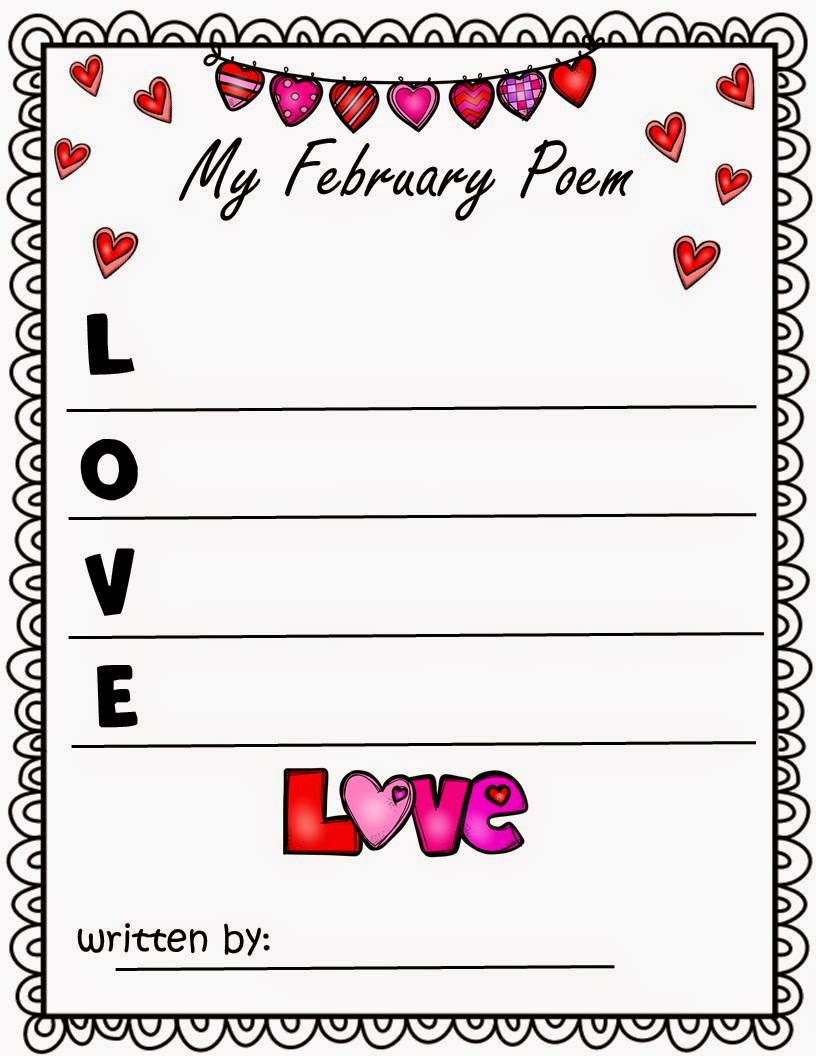 My February Poem
L
O
V
E
Love
written by: